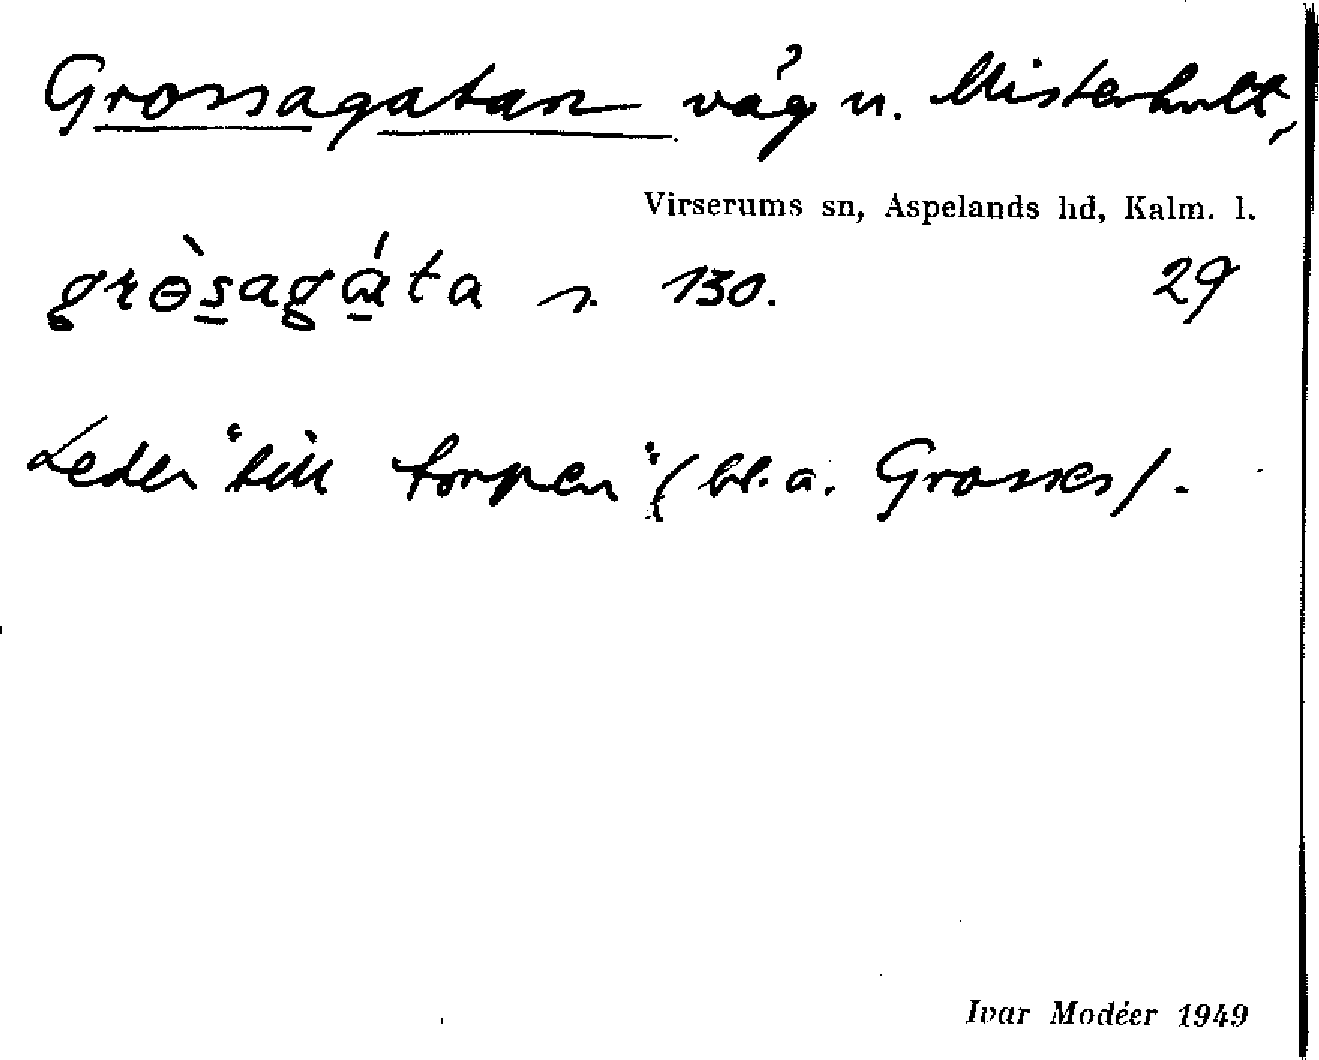 Grossagatan väg u. Misterhult,
Virserums sn, Aspelands hd, Kalm. l.
grɵ̀s̲agɑ́ta s. 130. 29
Leder "till torpen" (bl.a. Grosses).
Ivar Modéer 1949